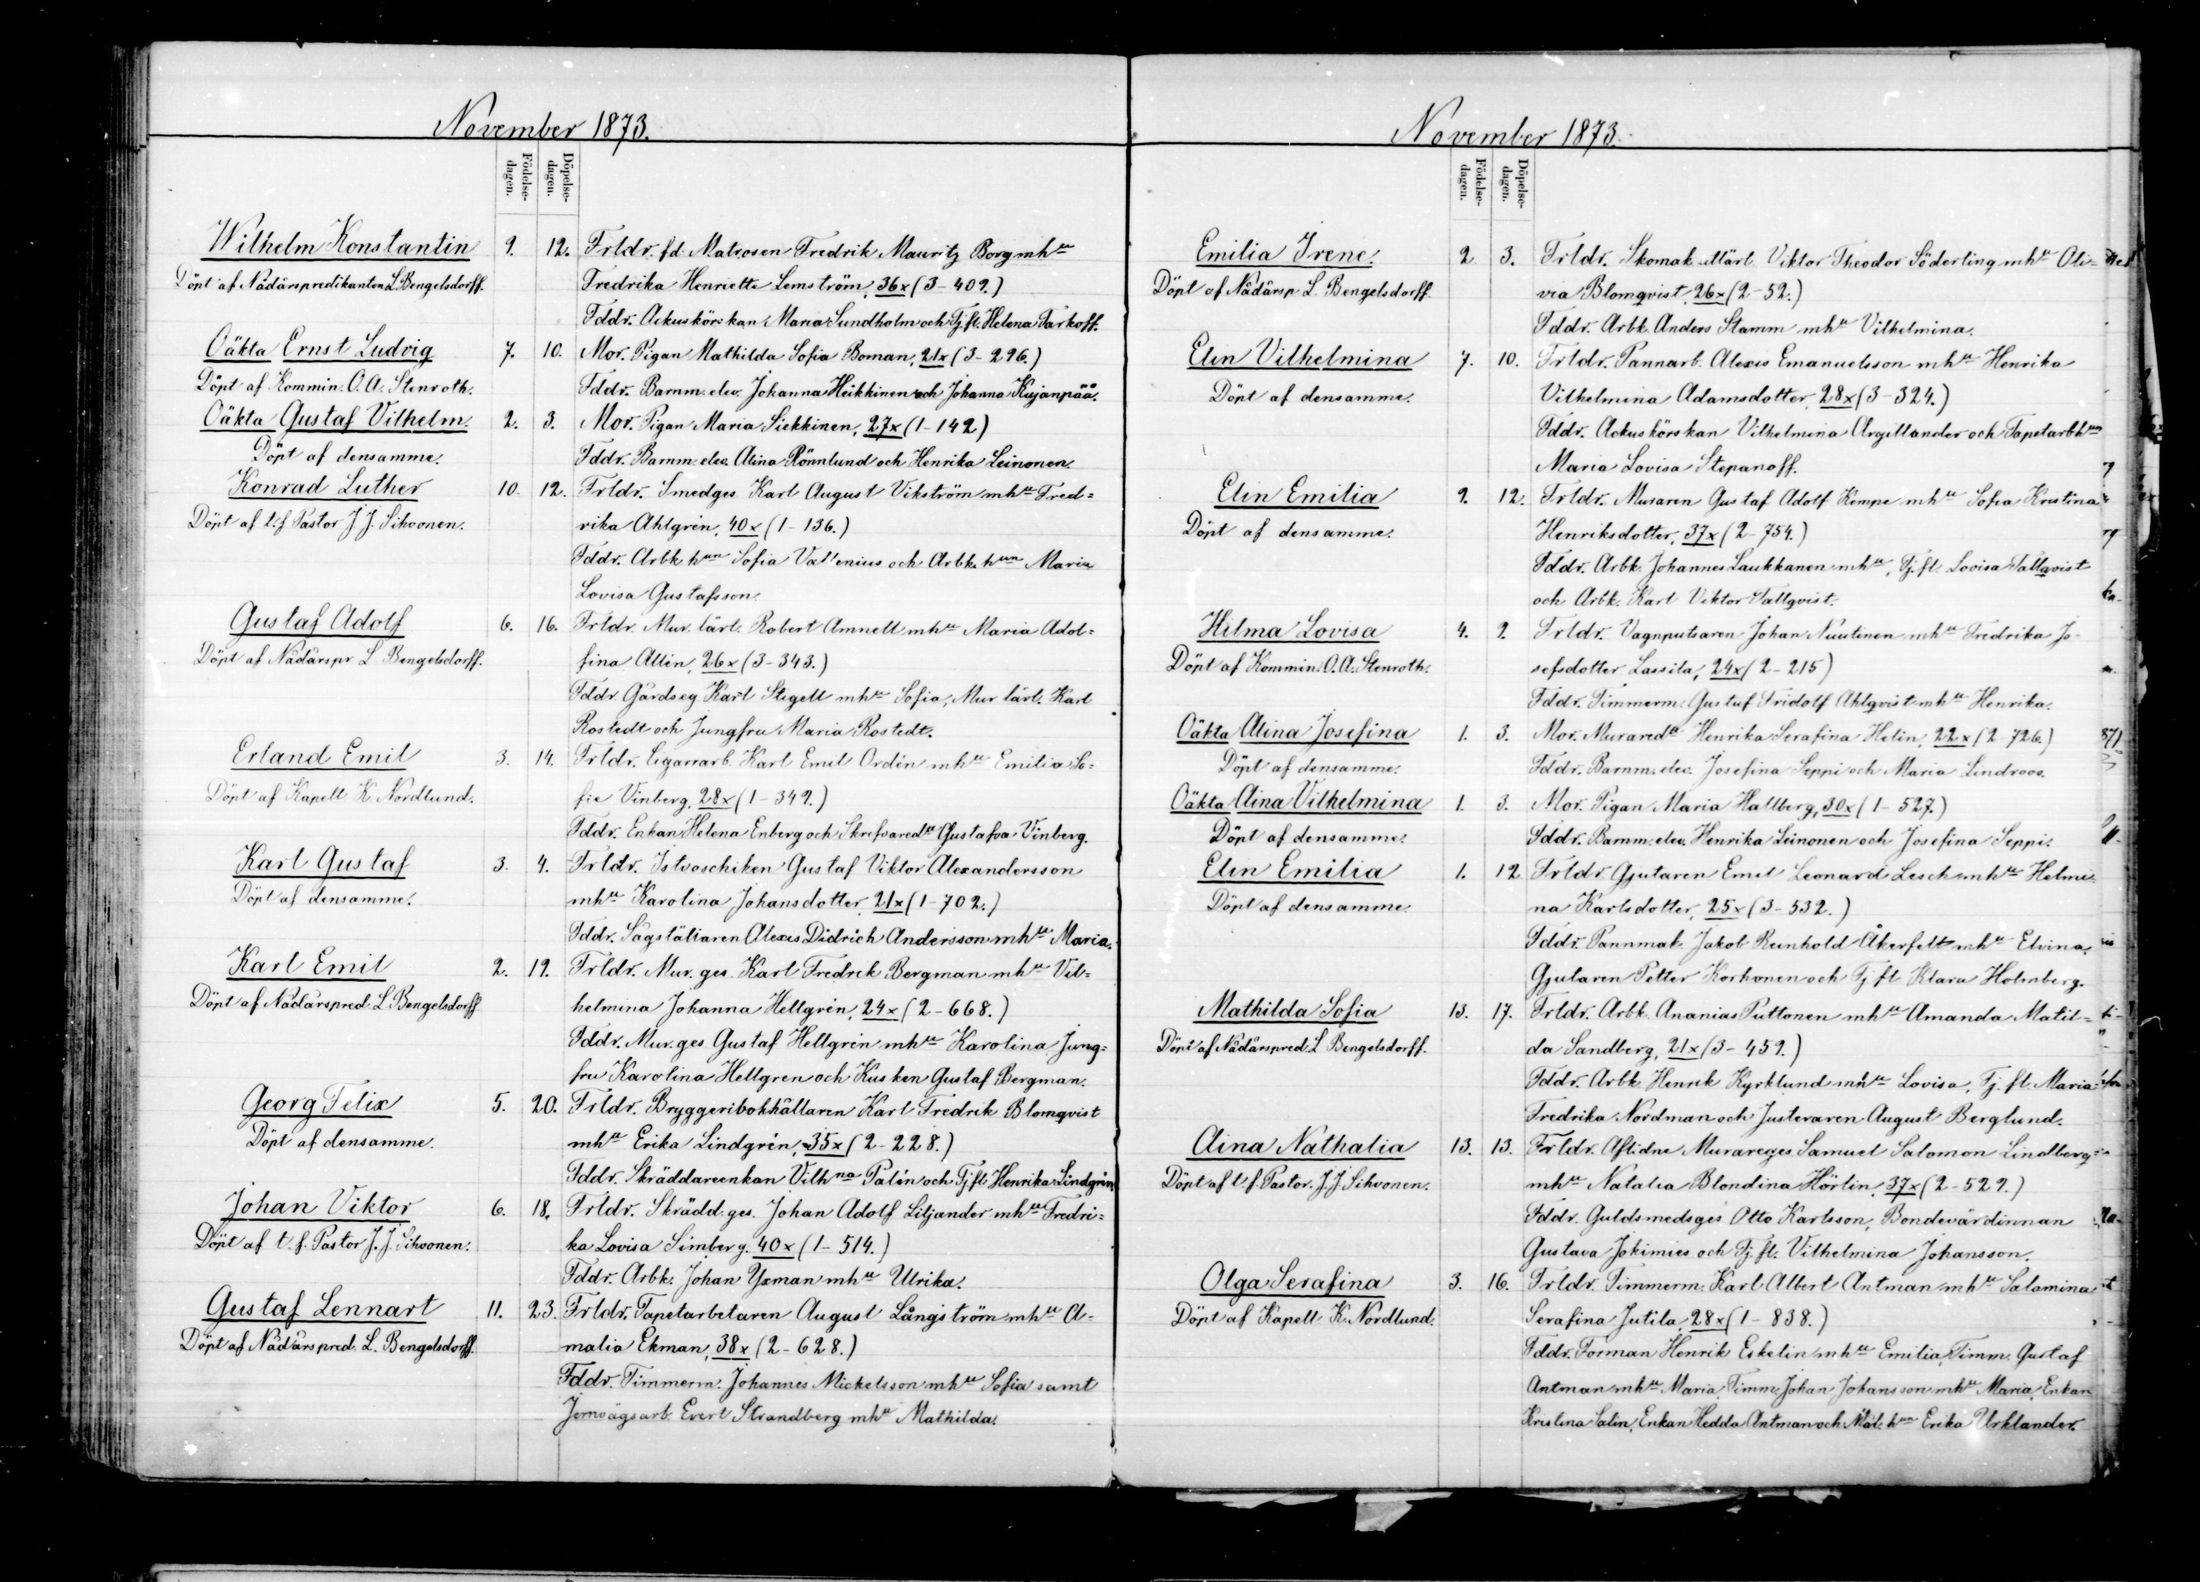 November 1873.
Födelse-dagen.
Döpelse-dagen.
Wilhelm Konstantin 9. 12. Frldr. fd. Matrosen Fredrik Mauritz Borg mhu
Döpt af Nådårspredikanten L. Bengelsdorff. Fredrika Henriette Lemström, 36x (3-409.)
Fddr. Ackuskörskan Maria Sundholm och Tj.fl. Helena Parkoff.
Oäkta Ernst Ludvig 7. 10. Mor. Pigan Mathilda Sofia Boman, 21x (3-296.)
Döpt af Kommin. O. A. Stenroth. Fddr. Barnm. elev. Johanna Heikkinen och Johanna Kujanpää.
Oäkta Gustaf Vilhelm. 2. 3. Mor. Pigan Maria Siekkinen, 27x (1-142)
Döpt af densamme. Fddr. Barnm. elev. Alina Rönnlund och Henrika Leinonen.
Konrad Luther 10. 12. Frldr. Smedges. Karl August Vikström mhu Fred=
Döpt af t.f. Pastor J. J. Sihvonen. rika Ahlgrén, 40x (1-136.)
Fddr. Arbk. hun Sofia Vallenius och Arbk. hun Maria
Lovisa Gustafsson.
Gustaf Adolf 6. 16. Frldr. Mur. lärl. Robert Amnell mhu Maria Adol=
Döpt af Nådårspr L Bengelsdorff. fina Allén, 26x (3-343.)
Fddr Gårdseg Karl Stigell mhu Sofia, Mur lärl. Karl
Rostedt och Jungfru Maria Rostedt.
Erland Emil 3. 14. Frldr. Cigarrarb. Karl Emil Ordén mhu Emilia So=
Döpt af Kapell K. Nordlund. fie Vinberg, 28x (1-349.)
Fddr. Enkan Helena Enberg och Skrefvaredtr Gustafva Vinberg.
Karl Gustaf 3. 4. Frldr. Istvoschiken Gustaf Viktor Alexandersson
Döpt af densamme. mhu Karolina Johansdotter, 21x (1-702.)
Fddr. Sågställaren Alexis Didrich Andersson mhu Maria.
Karl Emil 2. 19. Frldr. Mur. ges. Karl Fredrek Bergman mhu Vil=
Döpt af Nådårspred. L. Bengelsdorff helmina Johanna Hellgrén, 24x (2-668.)
Fddr. Mur. ges Gustaf Hellgrén mhu Karolina, Jung=
fru Karolina Hellgren och Kusken Gustaf Bergman.
Georg Felix 5. 20. Frldr. Bryggeribokhållaren Karl Fredrik Blomqvist
Döpt af densamme. mhu Erika Lindgrén, 35x (2-228.)
Fddr. Skräddareenkan Vilhna Palén och Tj.fl. Henrika Lindgrén.
Johan Viktor 6. 18. Frldr. Skrädd. ges. Johan Adolf Liljander mhu Fredri=
Döpt af t.f. Pastor J. J. Sihvonen. ka Lovisa Simberg. 40x (1-514.)
Fddr. Arbk. Johan Yxman mhu Ulrika.
Gustaf Lennart 11. 23. Frldr. Tapetarbetaren August Långström mhu A=
Döpt af Nådårspred. L. Bengelsdorff. malia Ekman, 38x (2-628.)
Fddr. Timmerm. Johannes Mickelsson mhu Sofia samt
Jernvägsarb. Evert Strandberg mhu Mathilda.
November 1873.
Födelse-dagen.
Döpelse-dagen.
Emilia Irene. 2 3. Frldr. Skomak. Mårt. Viktor Theodor Söderling mhu Oli=
Döpt af Nådårsp L. Bengelsdorff. via Blomqvist, 26x (2-52.)
Fddr. Arbk. Anders Stamm mhu Vilhelmina.
Elin Vilhelmina 7. 10. Frldr. Pannarb. Alexis Emanuelsson mhu Henrika
Döpt af densamme. Vilhelmina Adamsdotter, 28x (3-324.)
Fddr. Ackuskörskan Vilhelmina Argillander och Tapetarbhun
Maria Lovisa Stepanoff.
Elin Emilia 9. 12. Frldr. Muraren Gustaf Adolf Kempe mhu Sofia Kristina
Döpt af densamme. Henriksdotter, 37x (2-754.)
Fddr. Arbk. Johannes Laukkanen mhu, Tj.fl. Lovisa Tallqvist
och Arbk. Karl Viktor Tallqvist.
Hilma Lovisa 4. 9. Frldr. Vagnputsaren Johan Nuutinen mhu Fredrika Jo-
Döpt af Kommin. O. A. Stenroth. sefsdotter Lassila, 24x (2-215)
Fddr. Timmerm. Gustaf Fridolf Ahlqvist mhu Henrika.
Oäkta Alina Josefina 1. 3. Mor. Muraredtr Henrika Serafina Helin, 22x (2-726.)
Döpt af densamme. Fddr. Barnm. elev. Josefina Seppi och Maria Lindroos.
Oäkta Aina Vilhelmina 1. 3. Mor. Pigan Maria Hallberg, 30x (1-527.)
Döpt af densamme. Fddr. Barnm. elev. Henrika Leinonen och Josefina Seppi.
Elin Emilia 1. 12 Frldr. Gjutaren Emil Leonard Lesch mhu Helmi-
Döpt af densamme. na Karlsdotter, 25x (3-532.)
Fddr. Pannmak. Jakob Reinhold Åkerfelt mhu Elvina,
Gjutaren Petter Korhonen och Tj.fl. Klara Holmberg.
Mathilda Sofia 13. 17. Frldr. Arbk. Ananias Puttonen mhu Amanda Matil=
Döpt af Nådårspred. L Bengelsdorff. da Sandberg, 21x (3-459.)
Fddr. Arbk. Henrik Kyrklund mhu Lovisa, Tj.fl. Maria
Fredrika Nordman och Justeraren August Berglund.
Aina Nathalia 13. 13. Frldr. Aflidne Murareges. Samuel Salomon Lindberg
Döpt af t.f. Pastor. J. J. Sihvonen. mhu Natalia Blondina Hörlin, 37x (2-529.)
Fddr. Guldsmedsges Otto Karlsson, Bondevärdinnan
Gustava Jokimies och Tj.fl. Vilhelmina Johansson.
Olga Serafina 3. 16. Frldr. Timmerm. Karl Albert Antman mhu Salomina
Döpt af Kapell K. Nordlund. Serafina Jutila, 28x (1-838.)
Fddr. Forman Henrik Eskelin mhu Emilia, Timm. Gustaf
Antman mhu Maria, Timm Johan Johansson mhu Maria, Enkan
Kristina Salin, Enkan Hedda Antman och Mål. hun Erika Urklander.